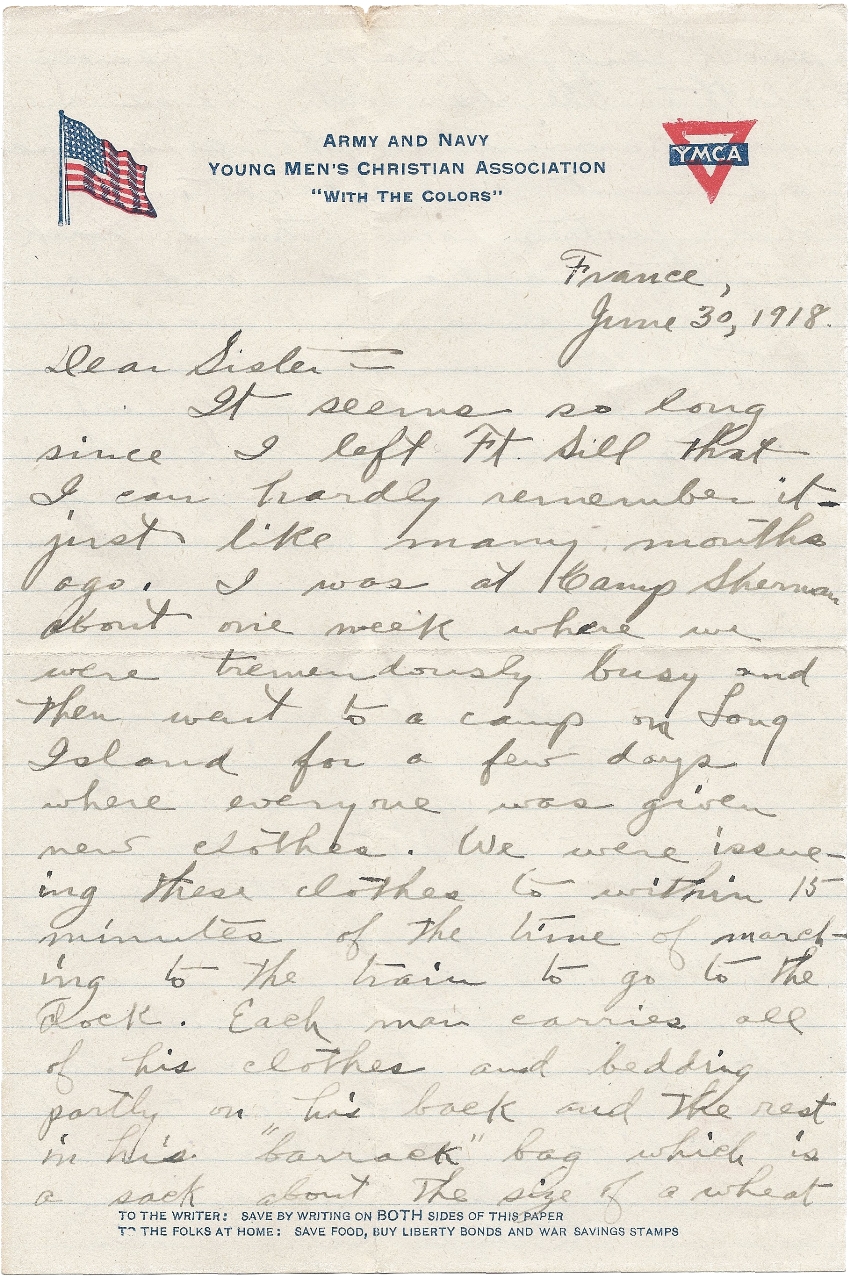 ARMY AND NAVY
YOUNG MEN'S CHRISTIAN ASSOCIATION
"WITH THE COLORS"
YMCA
France,
June 30, 1918.
Dear Sister =
It seems so long
since I left Ft. Sill that
I can hardly remember it -
just like many months
ago. I was at Camp Sherman
about one week where we
were tremendously busy and
then went to a camp on Long
Island for a few days
where everyone was given
new clothes. We were issue-
ing these clothes to within 15
minutes of the time of march-
ing to the train to go to the
dock. Each man carries all
of his clothes and bedding
partly on his back and the rest
in his "barrack" bag which is
a sack about the size of a wheat
TO THE WRITER: SAVE BY WRITING ON BOTH SIDES OF THIS PAPER
TO THE FOLKS AT HOME: SAVE FOOD, BUY LIBERTY BONDS AND WAR SAVINGS STAMPS